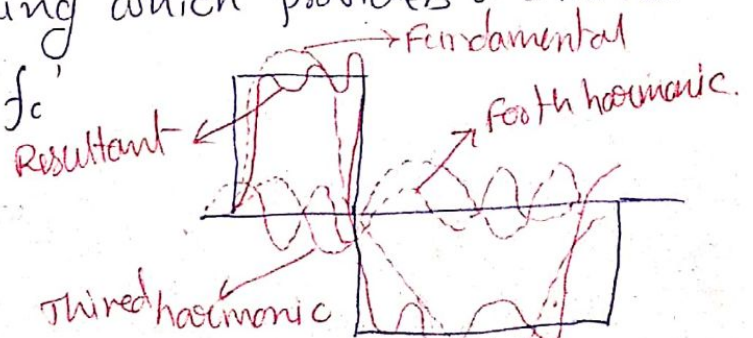 ing which provides
Fundamental
fc'
Resultant
Footh harmonic.
Thired harmonic